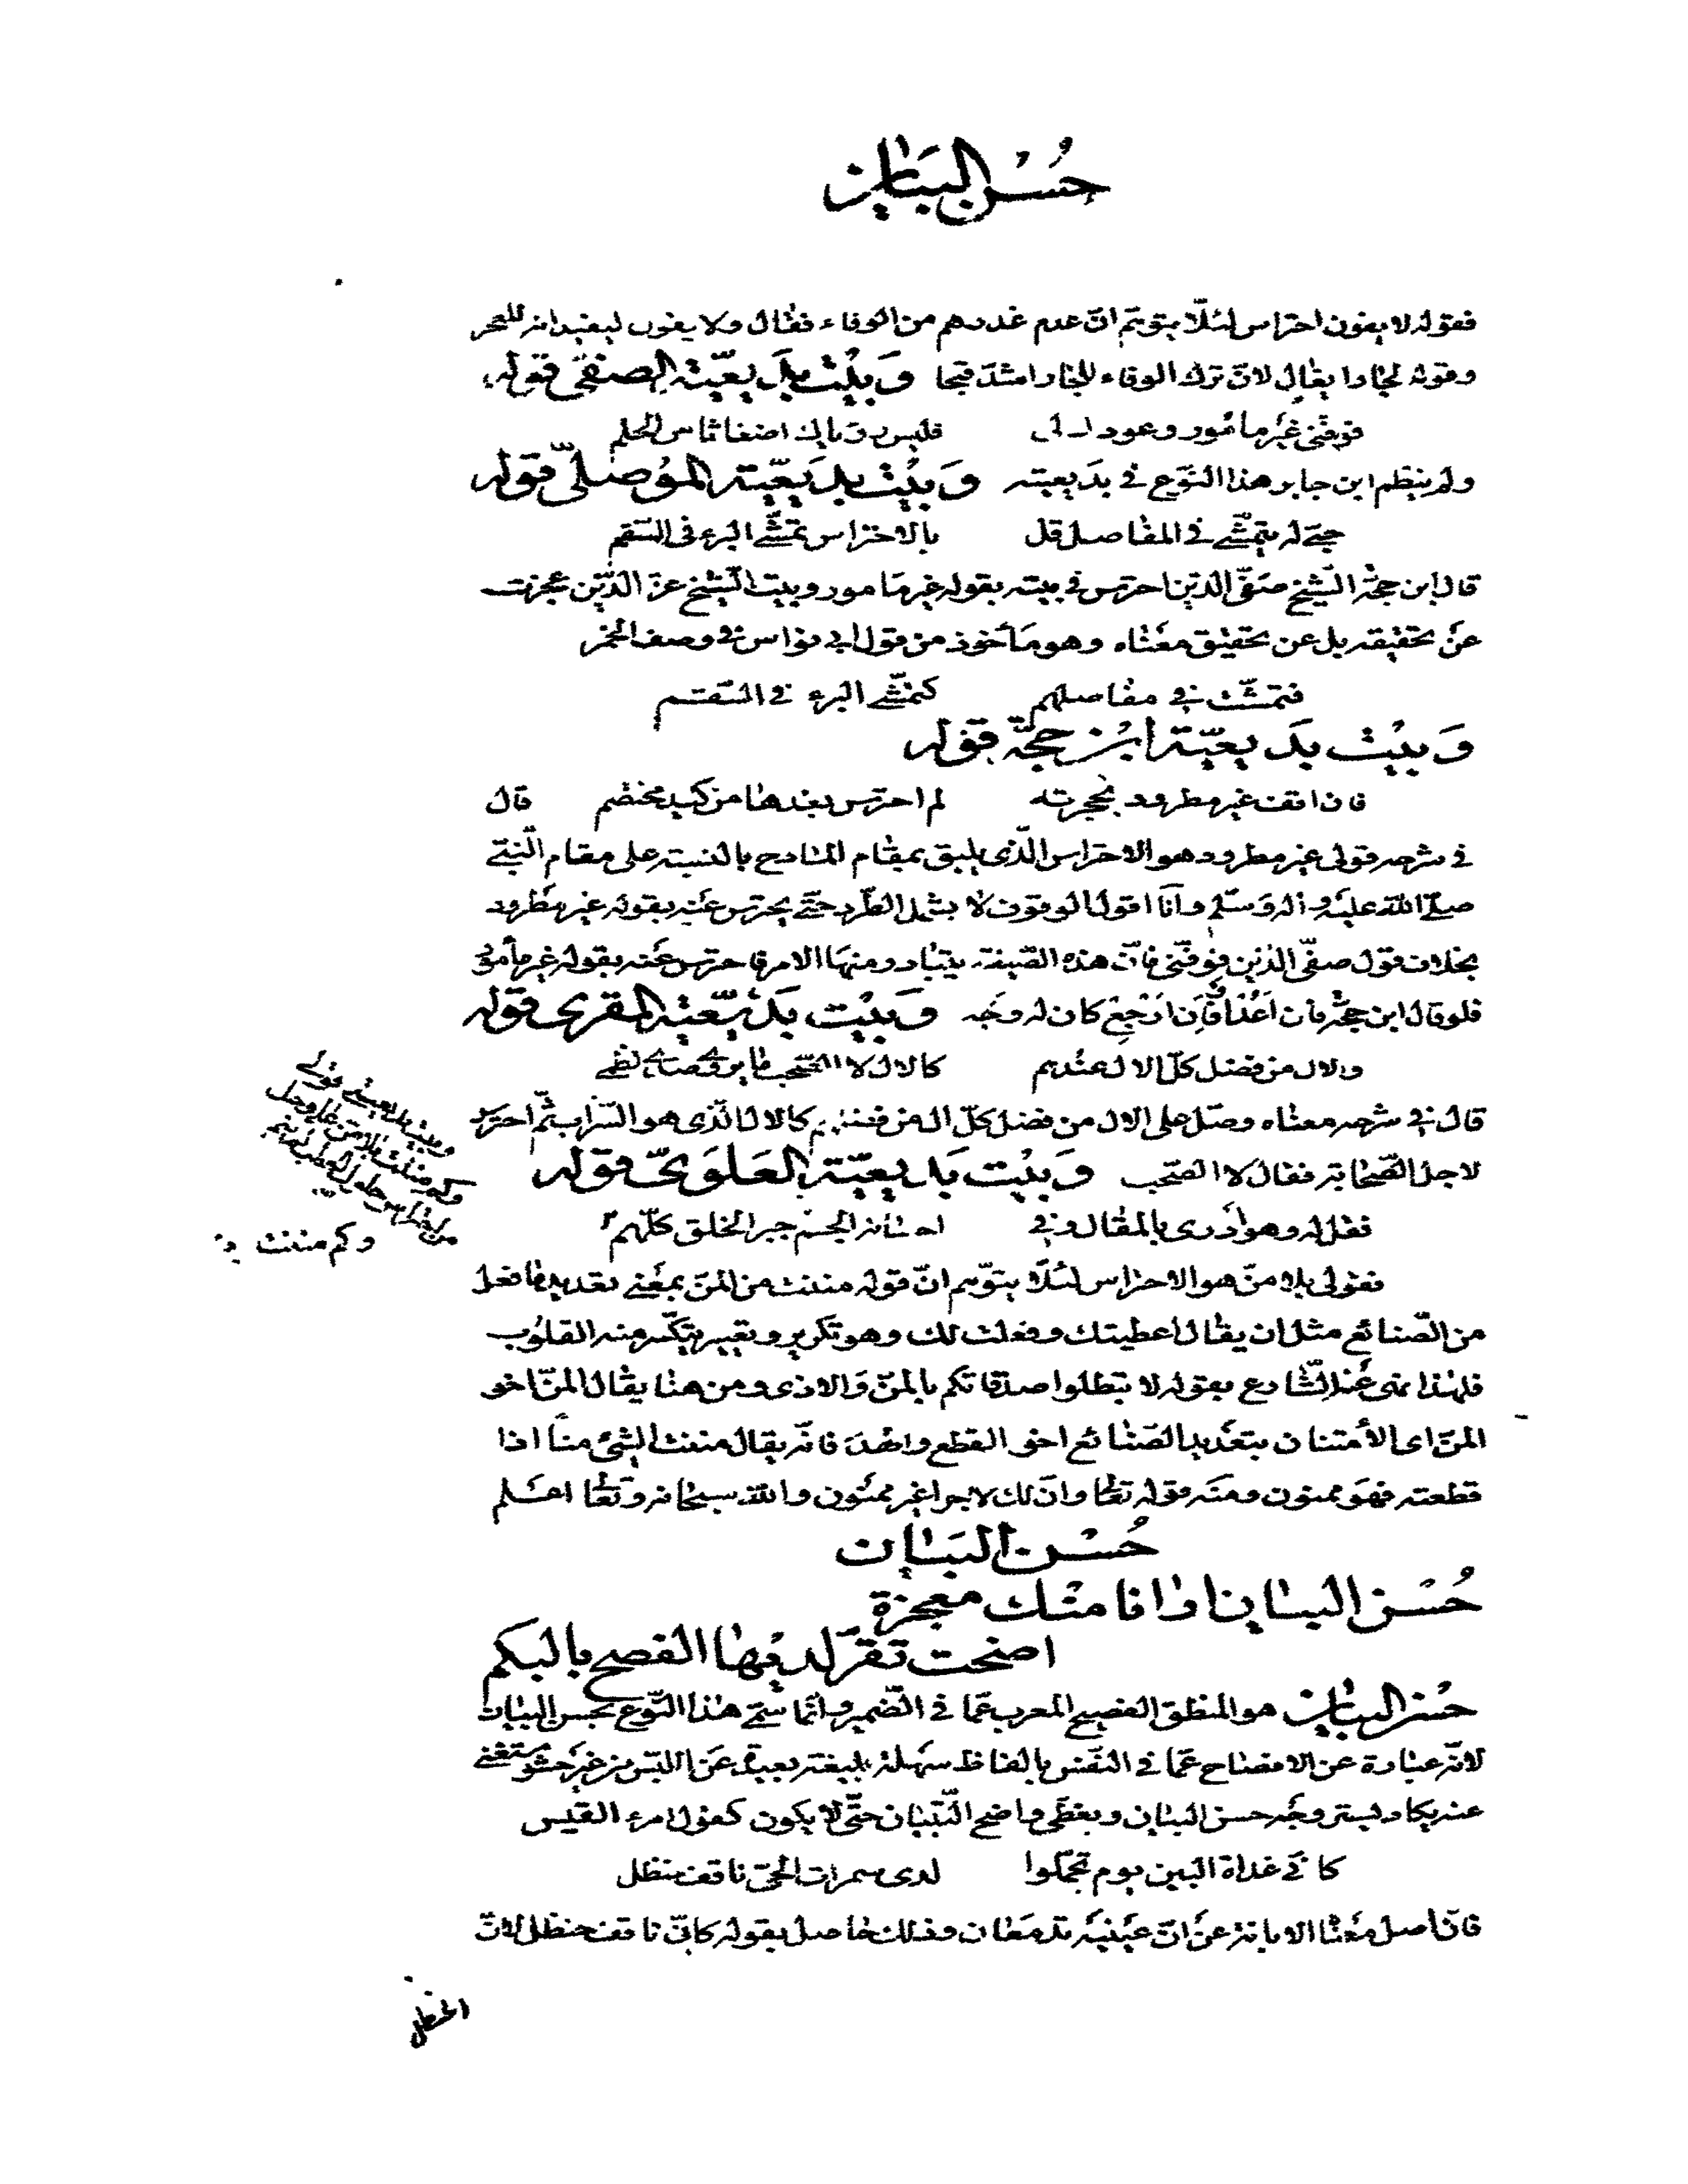 حُسْن البَيَان
فقوله لا يفون احتراس لئلّا يتوهّم انّ عدم غدرهم من الوفاء فقال ولا يفون ليفيد انه للعجز
وقوله لجار ايغال لانّ ترك الوفاء للجار اشدّ قبحا وَبَيْت بَديعيّته الصفيّ قوله
فوفّني غير مأمور وعودك لي فليس رؤياك اضغاثا من الحلم
ولم ينظم ابن جابر هذا النّوع في بديعيته وَبَيْت بَديعيّته الموصليّ قوله
حبّي له يتمشّى في المفاصل قل بالاحتراس تمشّي البرء في السّقم
قال ابن حجّة الشّيخ صفيّ الدّين احترس في بيته بقوله غير مامور وبيت الشيخ عزّ الدّين عجزت
عن تحقيقه بل عن تحقيق معناه وهو مأخوذ من قول ابي نواس في وصف الخمر
فتمشّت في مفاصلهم كتمشّي البرء في السّقم
وَبيْت بَديعيّة ابن حجّة قوله
فان اقف غير مطرود بحجرته لم احترس بعدها من كيد مختصم قال
في شرحه قولي غير مطرود هو الاحتراس الّذي يليق بمقام المادح بالنسبة على مقام النّبيّ
صلّى اللّه عليه وآله وسلّم وانا اقول الوقوف لا يشمل الطّرد حتّى يحترس عنه بقوله غير مطرود
بخلاف قول صفيّ الدّين فوفّني فانّ هذه الصّيغة يتبادر منها الامر فاحترس عنه بقوله غير مأمور
فلو قال ابن حجّة فان اعد او فان ارجع كان له وجه وَبَيْت بَديعيّته المقري قوله
والال من فضل كلّ الال عندهم كالال لا الصّحب
قال في شرحه معناه وصلّ على الال من فضل كلّ ال من فضلهم كالال الّذي هو السّراب ثمّ احترس
لاجل الصّحابة فقال لا الصّحب وَبَيْت بَديعيّة العَلَويّ قوله
فقل له وهو ادرى بالمقال وفي احسانه الجسم جبر الخلق كلّهم
وبيت بديعيتي قولي
وكم مننت بلا منّ على وجل
وكم مننت
فقولي بلا منّ هو الاحتراس لئلّا يتوّهم انّ قوله مننت من المنّ بمعنى تعديد ما فعل
من الصّنائع مثل ان يقال اعطيتك وفعلت لك وهو تكرير وتعيير يتكسّر منه القلوب
فلهذا نهى عنه الشّارع بقوله لا تبطلوا صدقاتكم بالمنّ والاذى ومن هنا يقال المنّ اخو
المنّ اى الأمتنان بتعديد الصّنائع اخو القطع والهدّ فانّه يقال مننت الشيء منّا اذا
قطعته فهو ممنون ومنه قوله تعالى وانّ لك لاجرا غير ممنون واللّه سبحانه وتعالى اعلم
حُسْن البَيَان
حُسْن البيان ارانا منك معجزة
اضحت تقرّ لديها الفصح بالبكم
حُسْن البيان هو المنطق الفصيح المعرب عمّا في الضّمير وانّما سمّي هذا النّوع بحسن البيان
لانّه عبارة عن الافصاح عمّا في النّفس بالفاظ سهلة بليغة بعيدة عن اللّبس من غير حشو مستغنى
عنه يكاد يستر وجه حسن البيان ويغطّي واضح التّبيان حتّى لا يكون كقول امرء القيس
كانّي غداة البين يوم تحمّلوا لدى سمرات الحيّ ناقف حنظل
فانّ اصل معنا الابانة عن انّ عينيه تدمعان وذلك حاصل بقوله كانّي ناقف حنظل لانّ
الحنظل